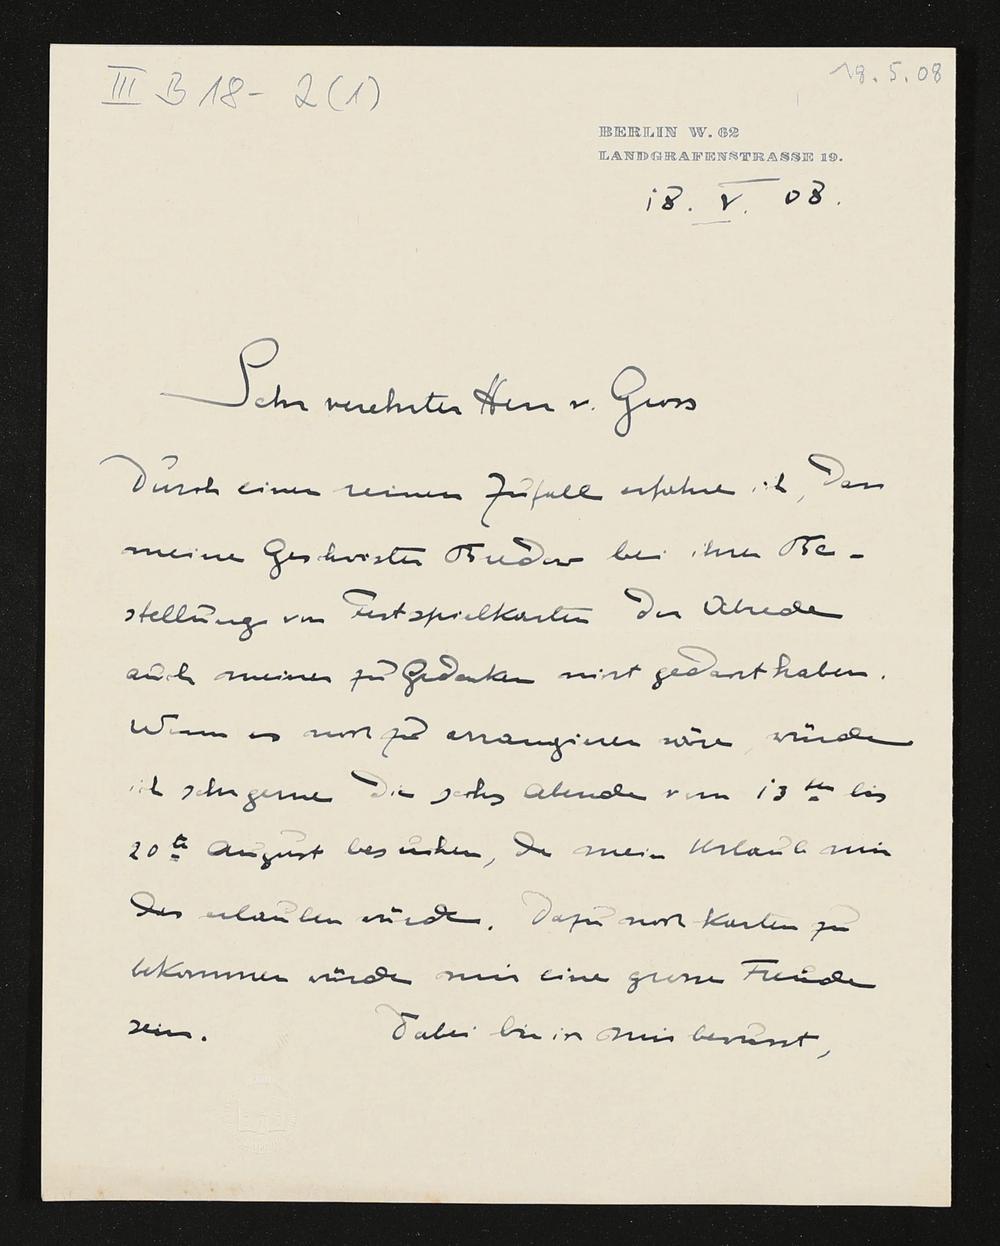 III B 18 - 2 (1)
18. 5. 08
BERLIN W. 62
LANDGRAFENSTRASSE 19.
18. V. 08.
Sehr verehrter Herr v. Gross
Durch einen reinen Zufall erfahre ich, dass
meine Geschwister Bredow bei ihrer Be-
stellung von Festspielkarten der Abrede
auch meiner zu Gedenken nicht gedacht haben.
Wenn es noch zu arrangieren wäre, würde
ich sehr gerne die sechs Abende vom 13ten bis
20te August besuchen, da mein Urlaub mir
das erlauben würde. Dafür noch Karten zu
bekommen würde mir eine grosse Freude
sein. Dabei bin ich mir bewusst,